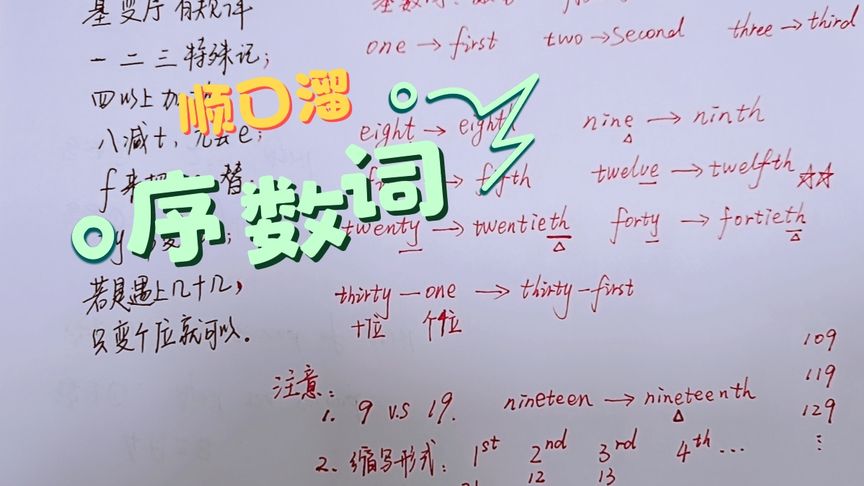 基变序有规律
基数词:
一 二 三 特殊记;
one → first two → second three → third
四以上加
顺口溜
八减t, e;
eight → eighth nine → ninth
f来把 替
fth twelve → twelfth ☆☆
序数词
twenty → twentieth forty → fortieth
若是遇上几十几,
thirty-one → thirty-first
只变个位就可以.
十位 个位
109
注意:
119
1. 9 v.s 19. nineteen → nineteenth
129
2. 缩写形式: 1st 2nd 3rd 4th...
12 13